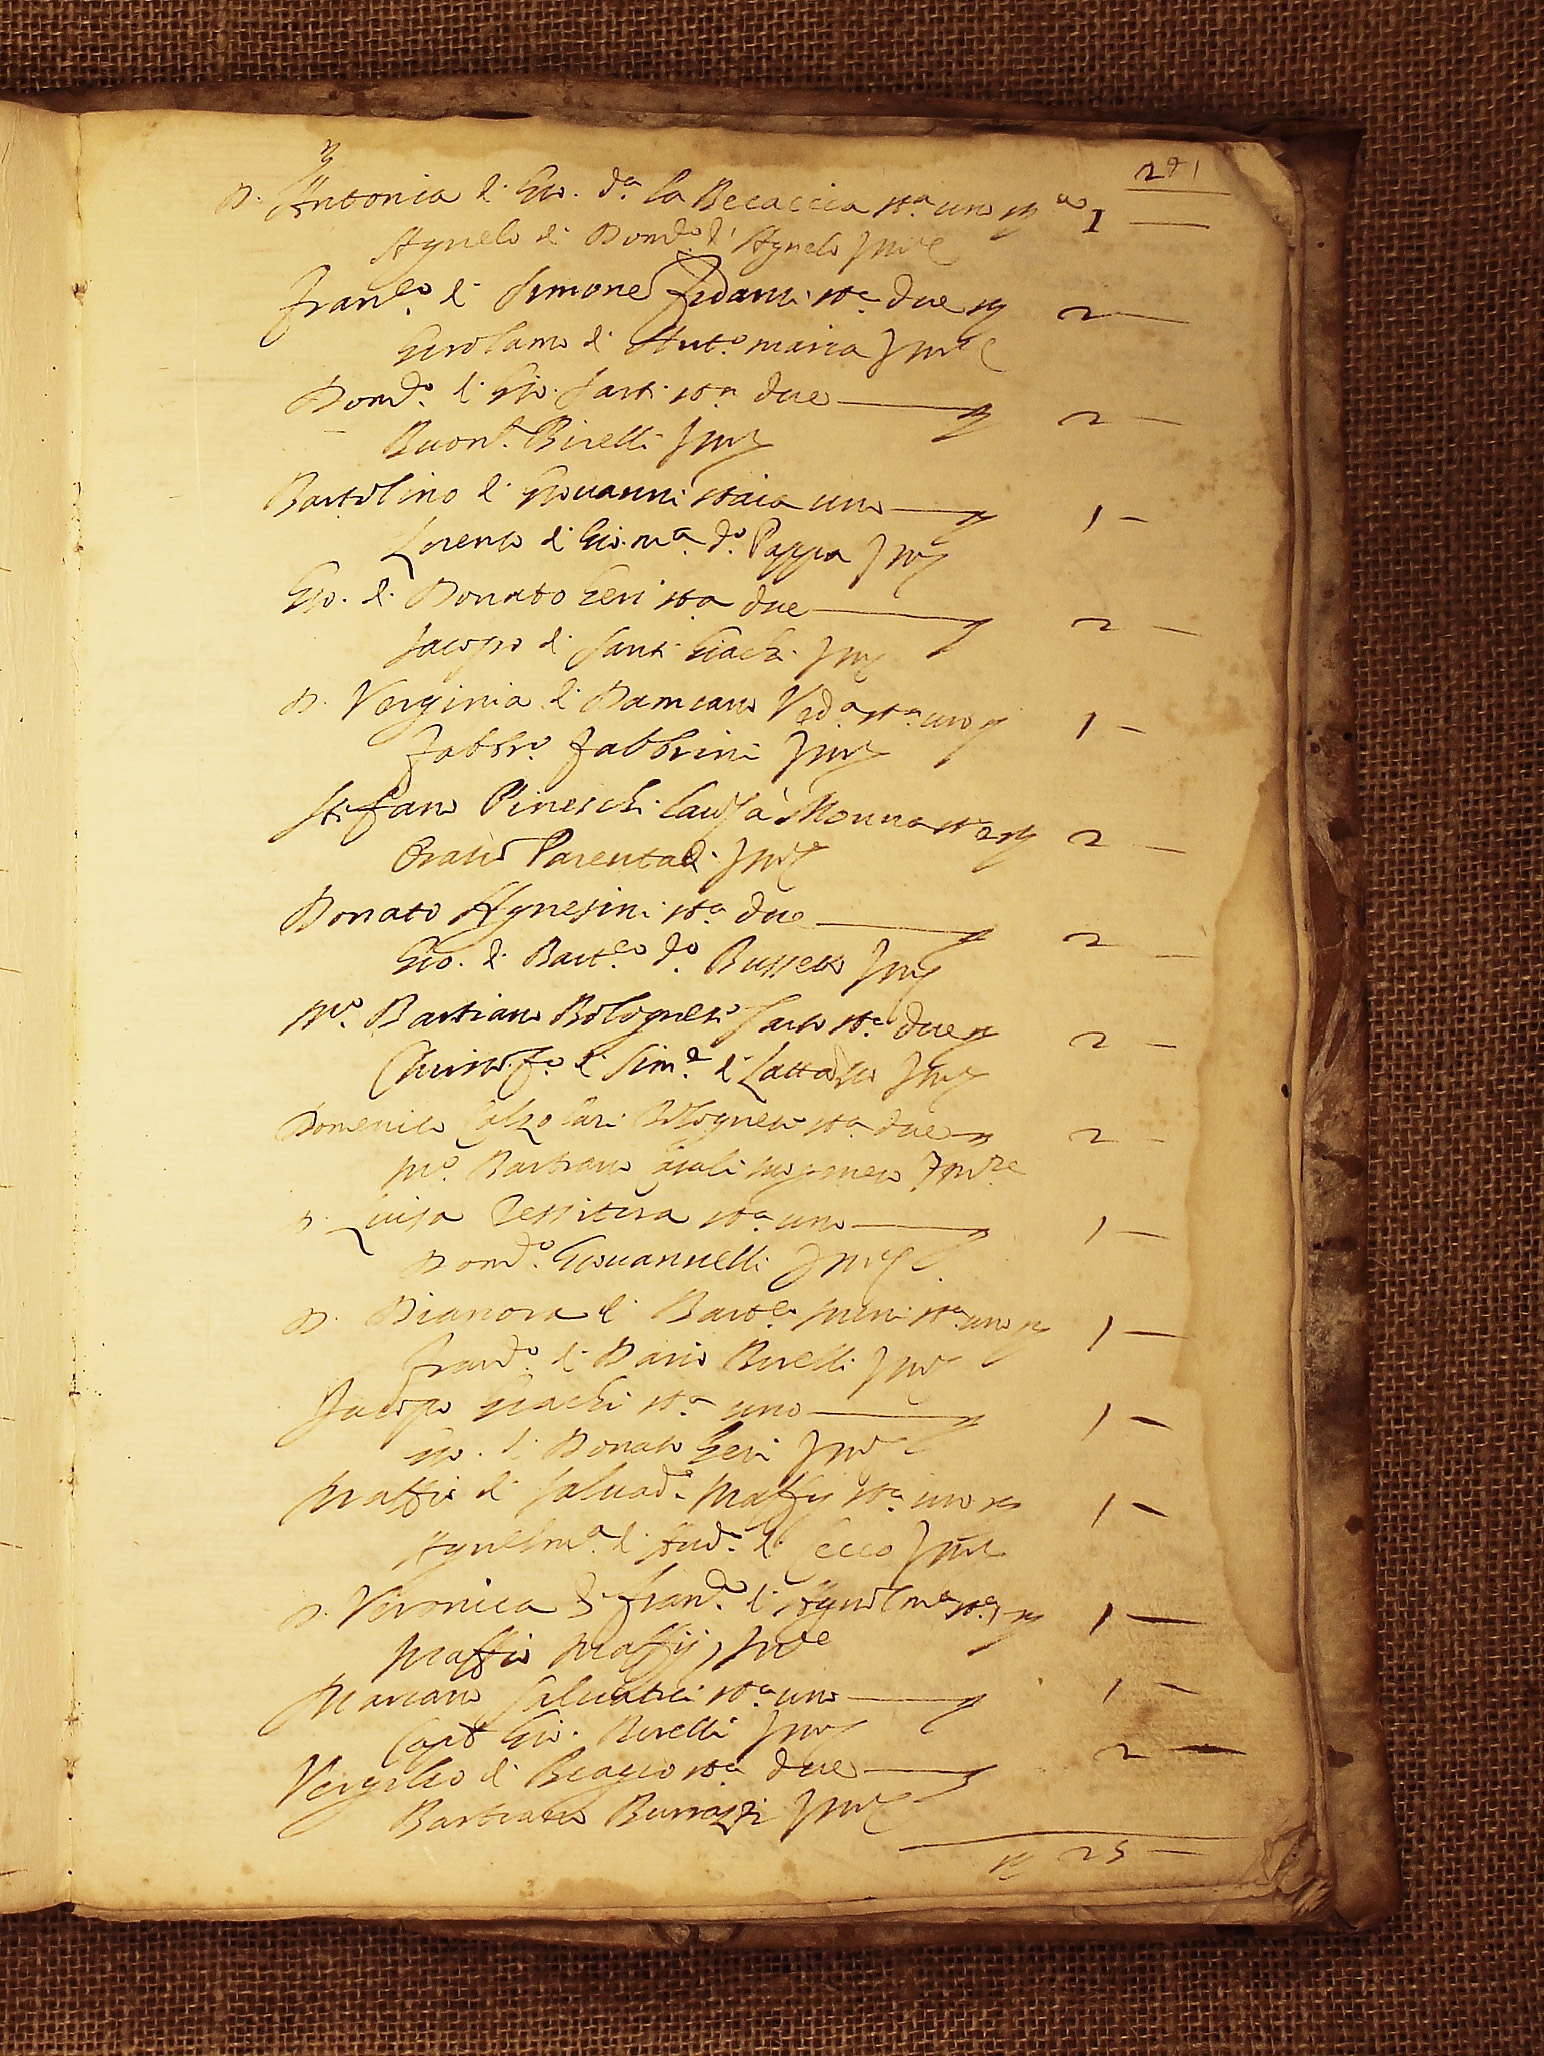 291
D. Antonia di Gio. d.a la Beccaccia sta. uno 1
Agnelo di Dom.co d' Agnelo
Fran.co di Simone Fedanti st.a due 2
Girolamo di Ant.o maria
Dom.co di Gio. Sarti st.a due 2
Buon. Birelli
Bartolino di Giovanni staia uno 1
Lorenzo di Gio. m.a d.o Pappa
Gio. di Donato Geri sta due 2
Jacopo di Santi Giachi
D. Verginia di Damiano Ved.a st.a uno 1
Fabbr.o Fabbrini
Stefano Pineschi st.a 2 2
Oratio Parentadi
Donato Agnesini st.a due 2
Gio. di Bart.eo d.o Bussetto
M.o Bastiano Bolognesi Sarto st.a due 2
Christof.o di Sim.e di
Domenico Calzolari Bolognese st.a due 2
M.o Bastiano
D. Luisa Tessitora st.a uno 1
Dom.co Giovannelli
D. Dianora di Bart.eo st.a uno 1
Fran.co di Dario Birelli
Jacopo Giachi st.a uno 1
Gio. di Donato Geri
Maffio di Salvad.e Maffij st.a uno 1
Agnolm.a di And.a di Cecco
D. Veronica di Fran.co di Agnolm.a st.a 1 1
Maffio Maffij
Mariano Salvatici st.a uno 1
Cap.o Gio. Birelli
Vergilio di Biagio sta due 2
Bastiano Burrazzi
25